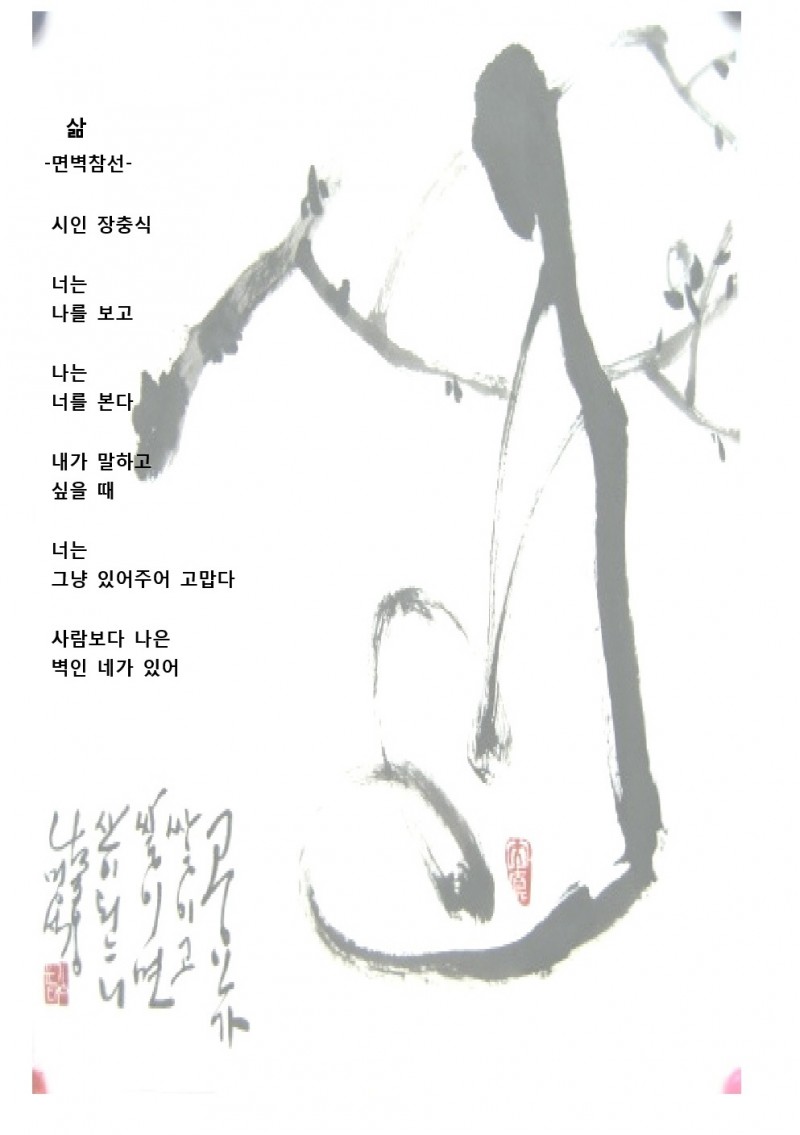 삶
-면벽참선-
시인 장충식
너는
나를 보고
나는
너를 본다
내가 말하고
싶을 때
너는
그냥 있어주어 고맙다
사람보다 나은
벽인 네가 있어
쌓이고
쌓이면
산이 되느니